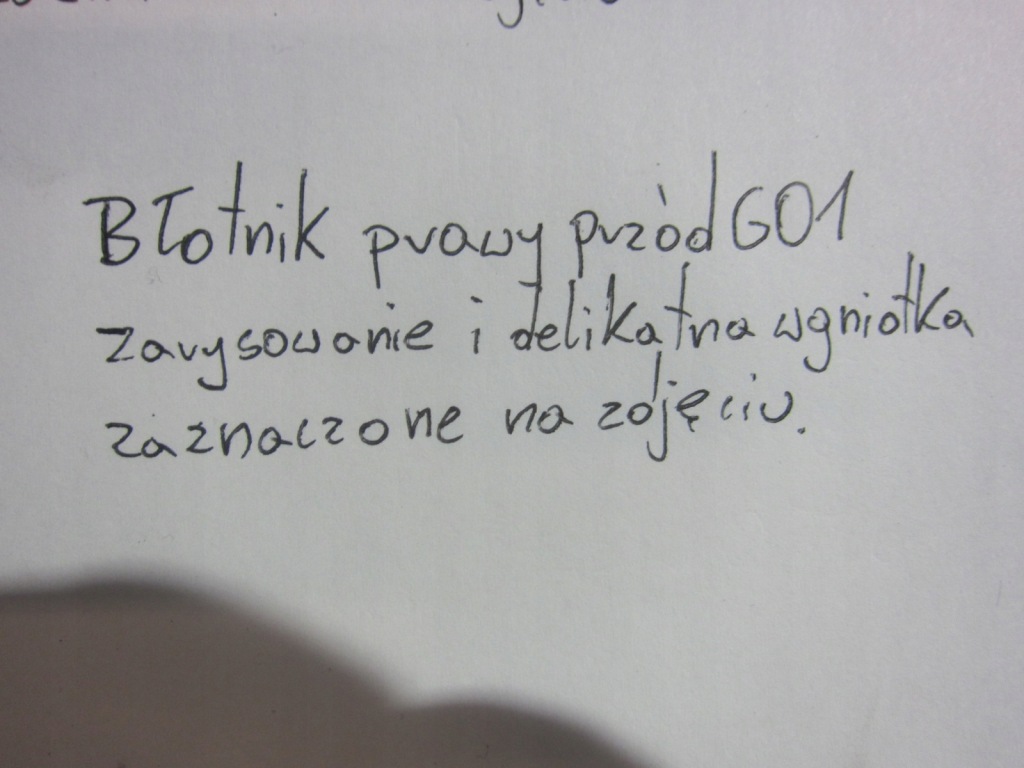 Błotnik prawy przód G01
zarysowanie i delikatna wgniotka
zaznaczone na zdjęciu.